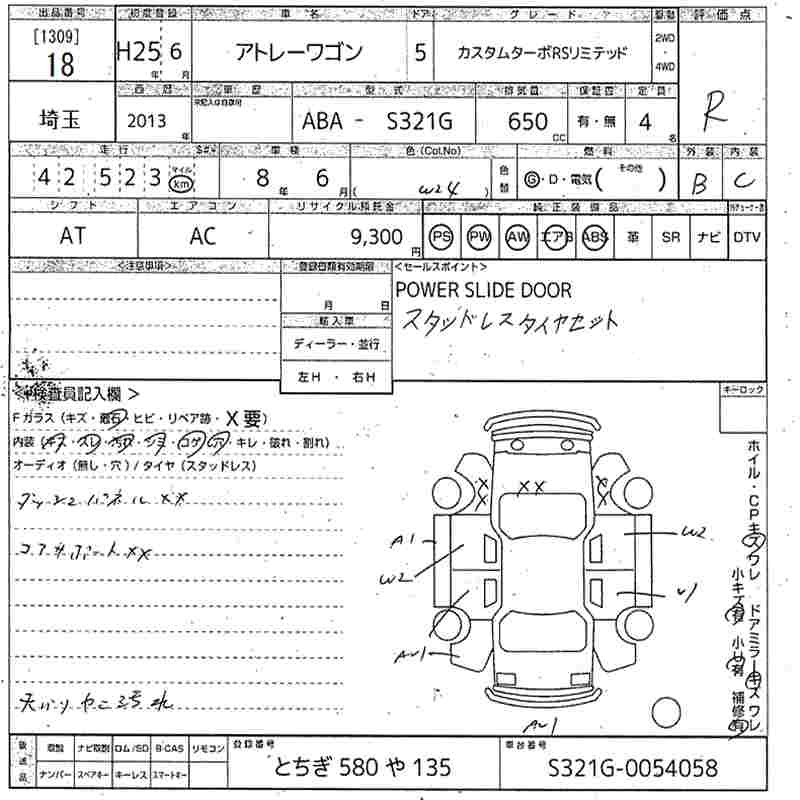 出品番号 初度登録 車名 ドア グレード 駆動 評価点
[1309] 18 H25年 6月 アトレーワゴン 5 カスタムターボRSリミテッド 2WD・4WD R
西暦 車歴 型式 排気量 保証書 定員
埼玉 2013年 ABA - S321G 650cc 有・無 4名
走行 車検 色(Col.No) 色替 燃料 外装 内装
42523 マイル km 8年 6月 ( W24 ) G・D・電気( その他 ) B C
シフト エアコン リサイクル預託金 純正装備品
AT AC 9,300円 PS PW AW エアB ABS 革 SR ナビ DTV
<注意事項> 登録書類有効期限 <セールスポイント>
月 日 POWER SLIDE DOOR
輸入車 スタッドレスタイヤセット
ディーラー・並行
左H ・ 右H
<検査員記入欄> キーロック
Fガラス(キズ・飛石・ヒビ・リペア跡・X要)
内装(キズ・スレ・汚れ・シミ・コゲ・穴・キレ・破れ・割れ)
オーディオ(無し・穴)/タイヤ(スタッドレス)
ダッシュパネル XX
コアサポート XX
天バリ ヤニ汚れ
XX
A1
W2
W2
AU1
AU1
ホイル・CPキズワレ ドアミラーキズワレ
小キズ有 小U有 補修有
後送品 取説 ナビ取説 ロム/SD B-CAS リモコン 登録番号 車台番号
ナンバー スペアキー キーレス スマートキー とちぎ 580 や 135 S321G-0054058